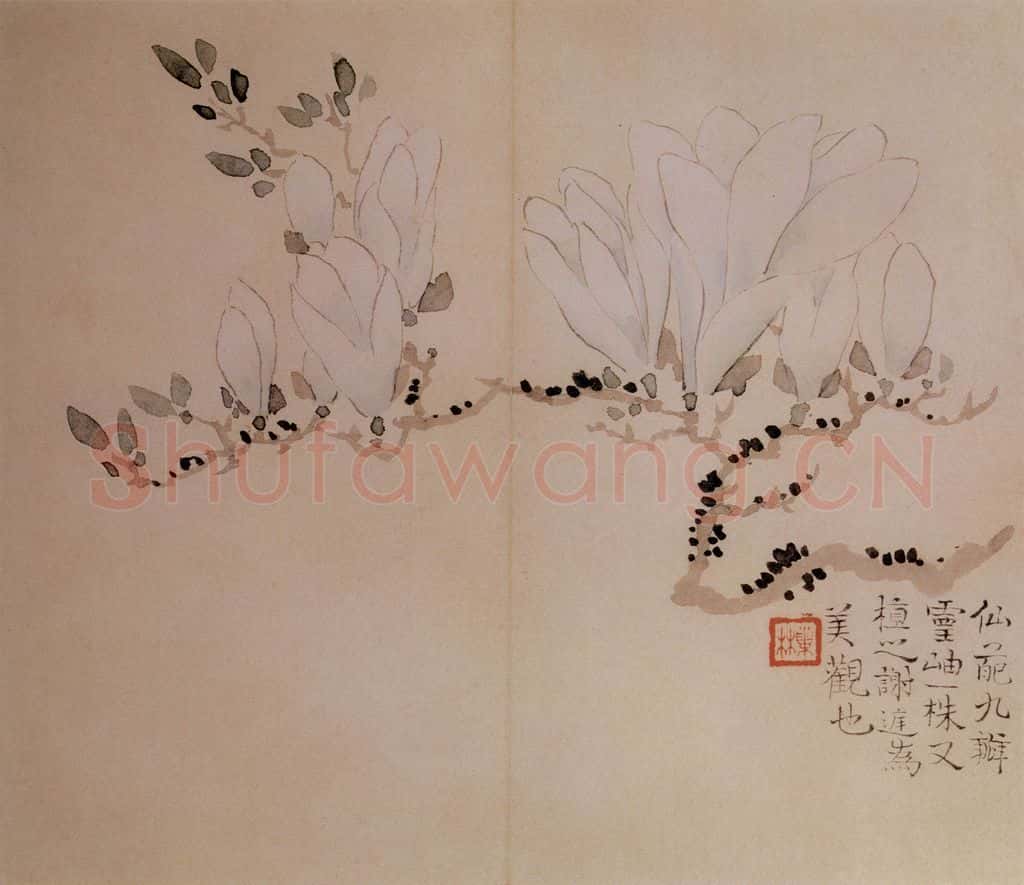 仙葩九瓣
靈岫一株又
植之謝庭為
美觀也
巢林
Shufawang.CN